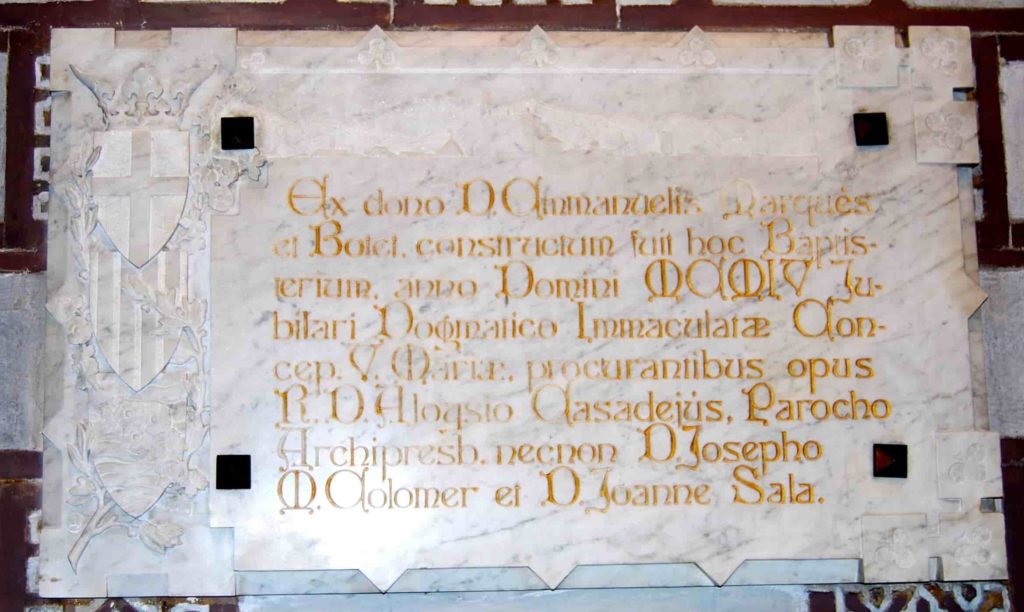 Ex dono D. Emmanuelis Marquès
et Botet, constructum fuit hoc Baptis-
terium, anno Domini MCMIV Ju-
bilari Dogmatico Immaculatæ Con-
cep. V. Mariæ, procurantibus opus
R. D. Aloysio Casadejús, Parocho
Archipresb. necnon D. Josepho
M. Colomer et D. Joanne Sala.